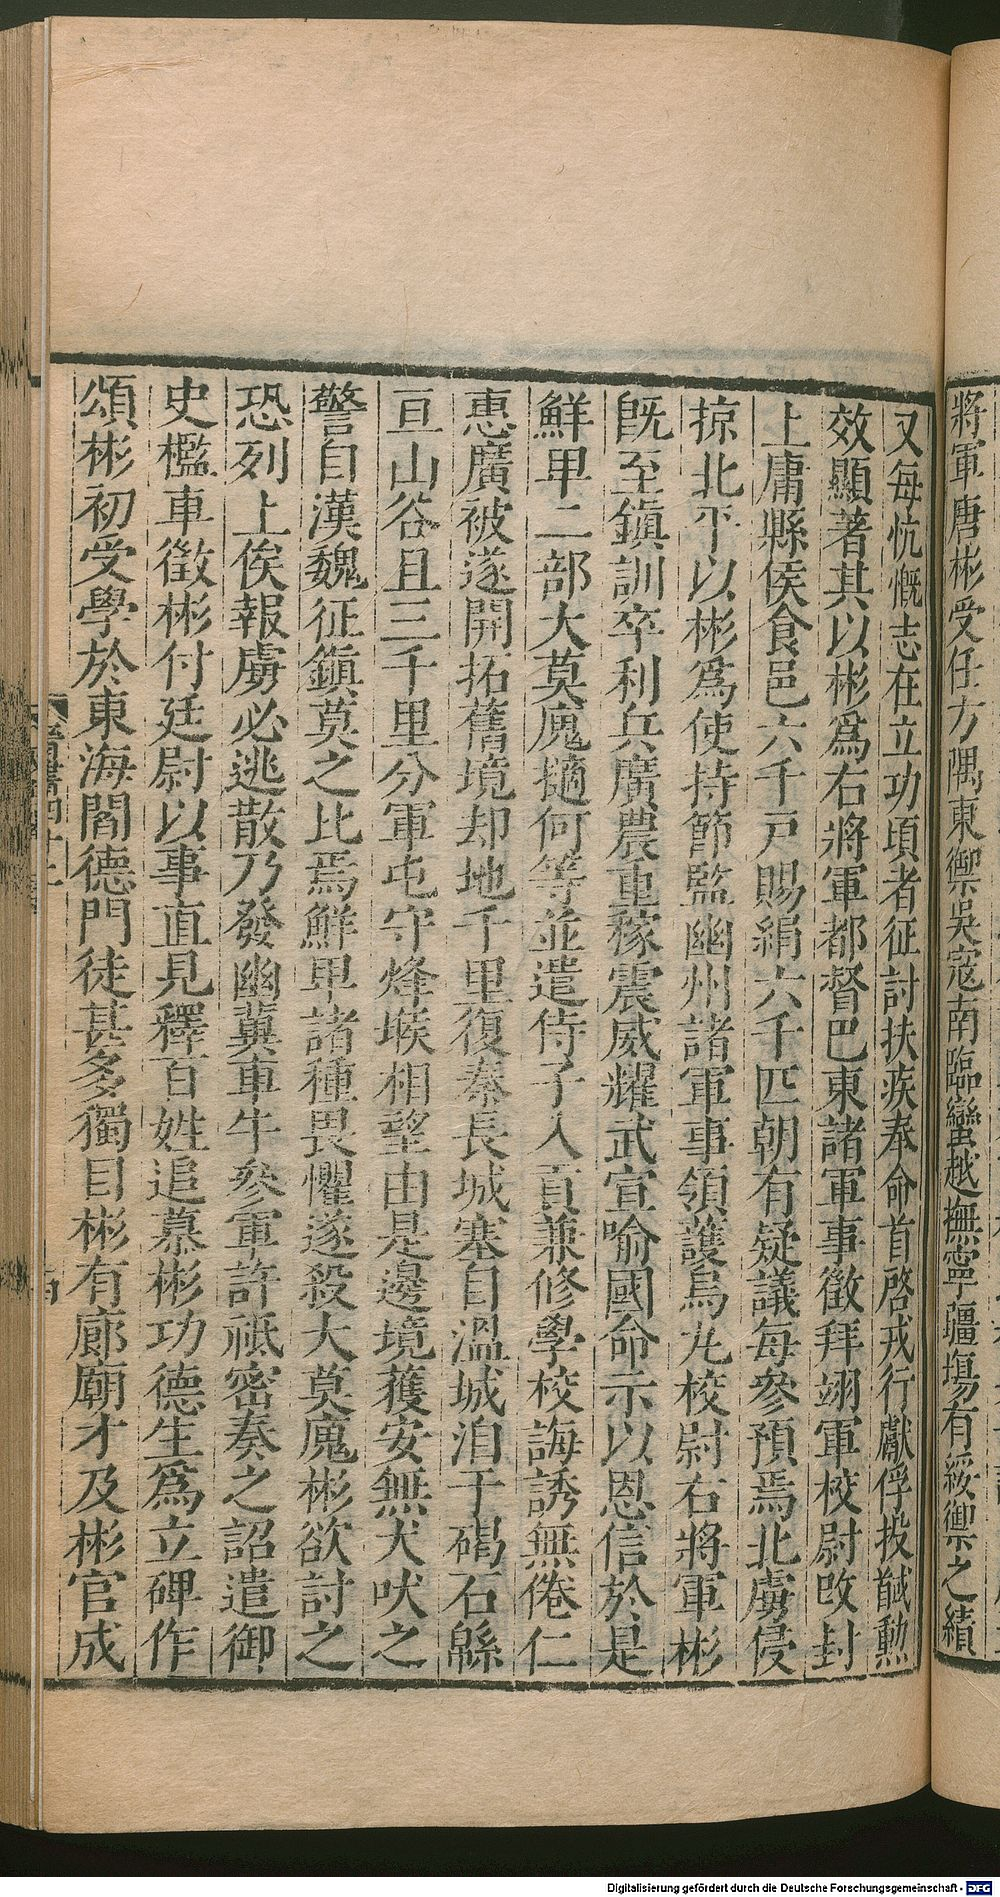 將軍唐彬受任方隅東禦吳寇南臨蠻越撫寧疆埸有綏禦之績
又每忼慨志在立功頃者征討扶疾奉命首啓戎行獻俘授馘勲
效顯著其以彬爲右將軍都督巴東諸軍事徵拜翊軍校尉改封
上庸縣侯食邑六千戸賜絹六千匹朝有疑議每參預焉北虜侵
掠北平以彬爲使持節監幽州諸軍事領護烏丸校尉右將軍彬
旣至鎭訓卒利兵廣農重稼震威耀武宣喻國命示以恩信於是
鮮卑二部大莫廆擿何等並遣侍子入貢兼修學校誨誘無倦仁
惠廣被遂開拓舊境却地千里復秦長城塞自溫城洎于碣石緜
亘山谷且三千里分軍屯守烽堠相望由是邊境獲安無犬吠之
警自漢魏征鎭莫之比焉鮮卑諸種畏懼遂殺大莫廆彬欲討之
恐列上俟報虜必逃散乃發幽冀車牛參軍許祗密奏之詔遣御
史檻車徵彬付廷尉以事直見釋百姓追慕彬功德生爲立碑作
頌彬初受學於東海閻德門徒甚多獨目彬有廊廟才及彬官成
Digitalisierung gefördert durch die Deutsche Forschungsgemeinschaft - DFG